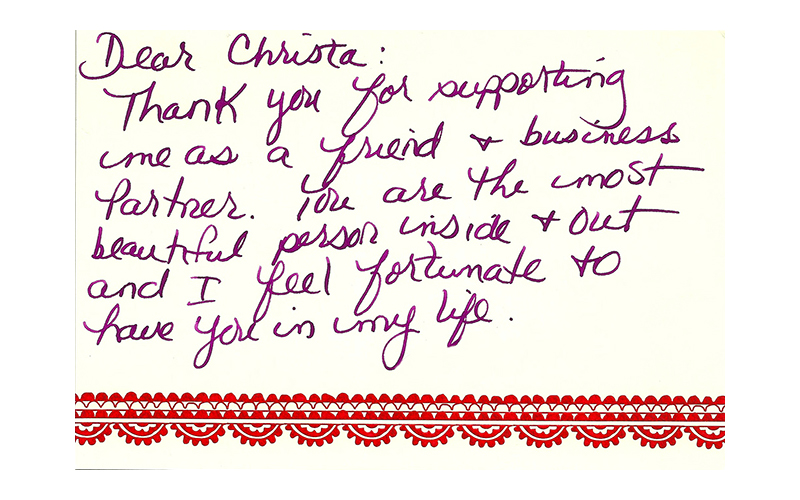 Dear Christa:
Thank you for supporting
me as a friend + business
Partner. You are the most
beautiful person inside + out
and I feel fortunate to
have you in my life.